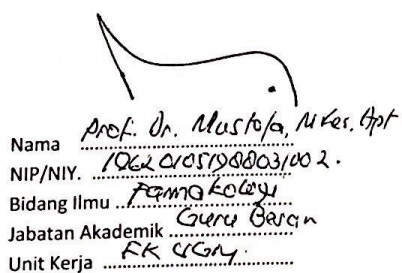 Nama Prof. Dr. Mustofa, M.Kes. Apt
NIP/NIY. 196201051988031002.
Bidang Ilmu Farmakologi
Jabatan Akademik Guru Besar
Unit Kerja FK UGM.